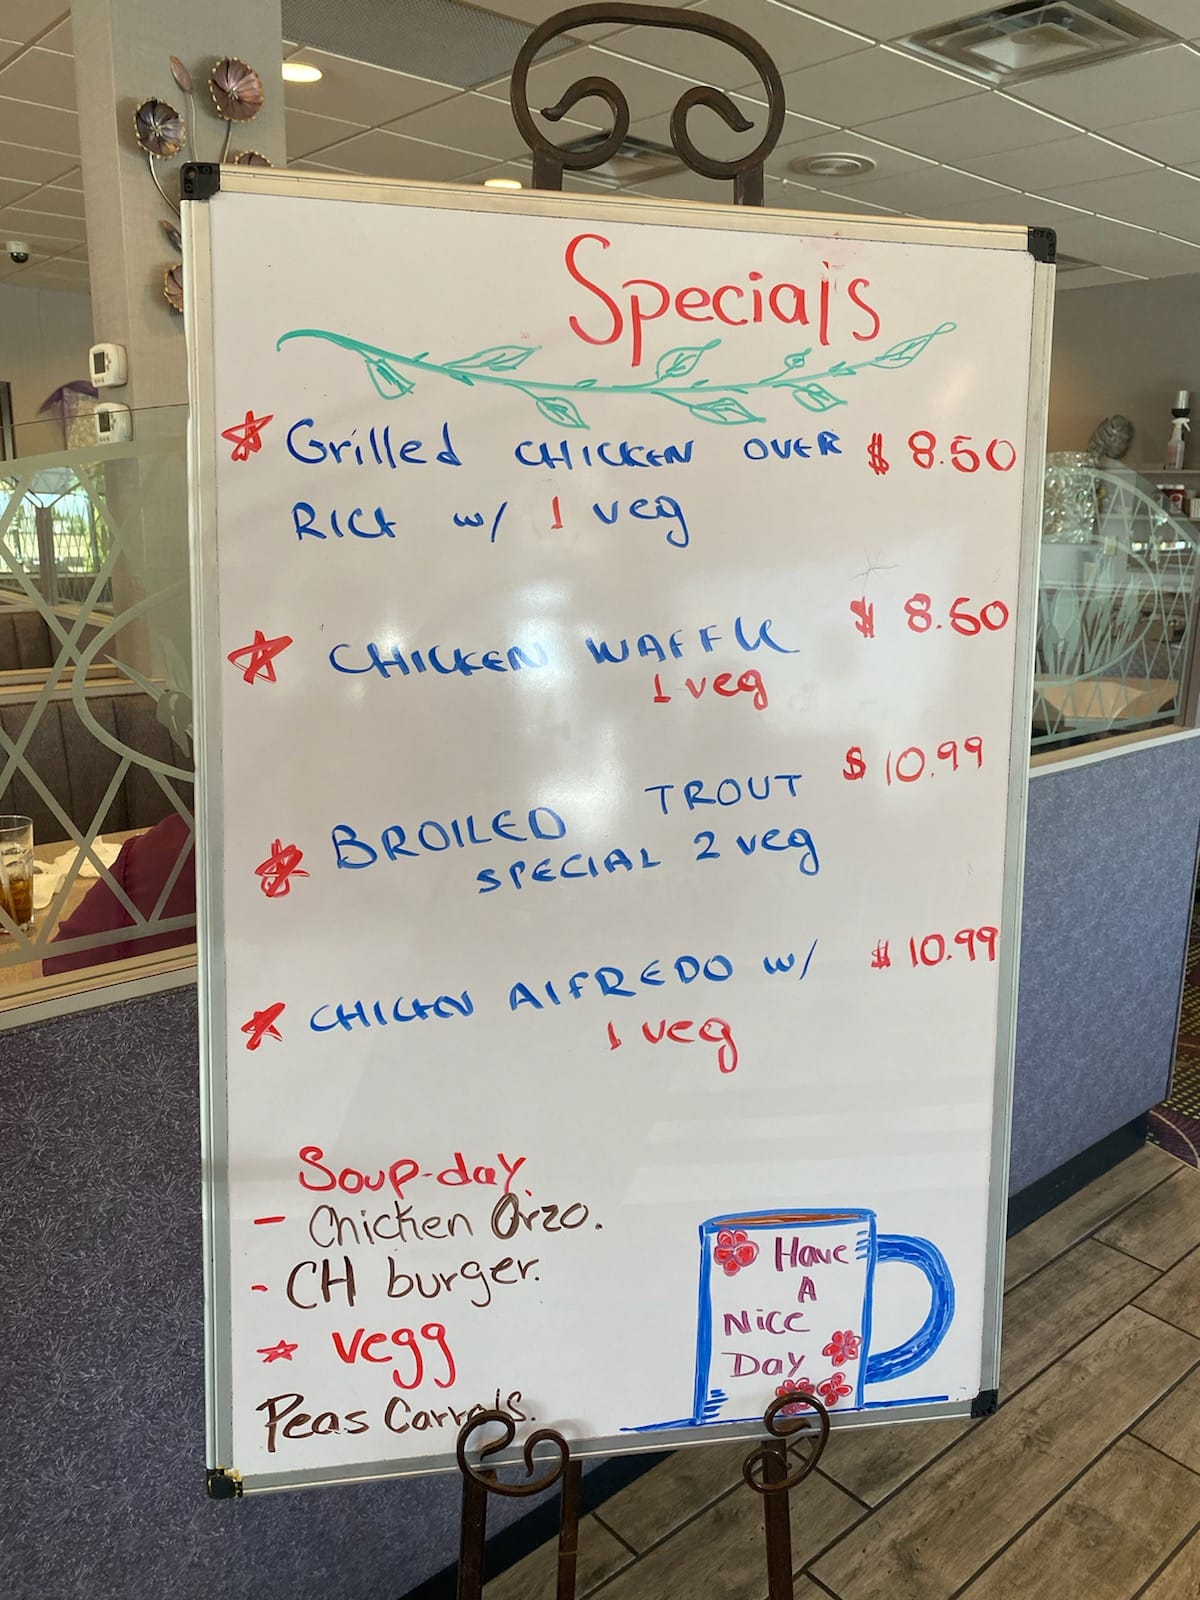 Specials
Grilled CHICKEN OVER $ 8.50
RICE w/ 1 veg
CHICKEN WAFFLE $ 8.50
1 veg
BROILED TROUT $ 10.99
SPECIAL 2 veg
CHICKEN AlFREDO w/ $ 10.99
1 veg
Soup-day.
- Chicken Orzo.
- CH burger.
vegg
Peas Carrots.
Have
A
Nice
Day